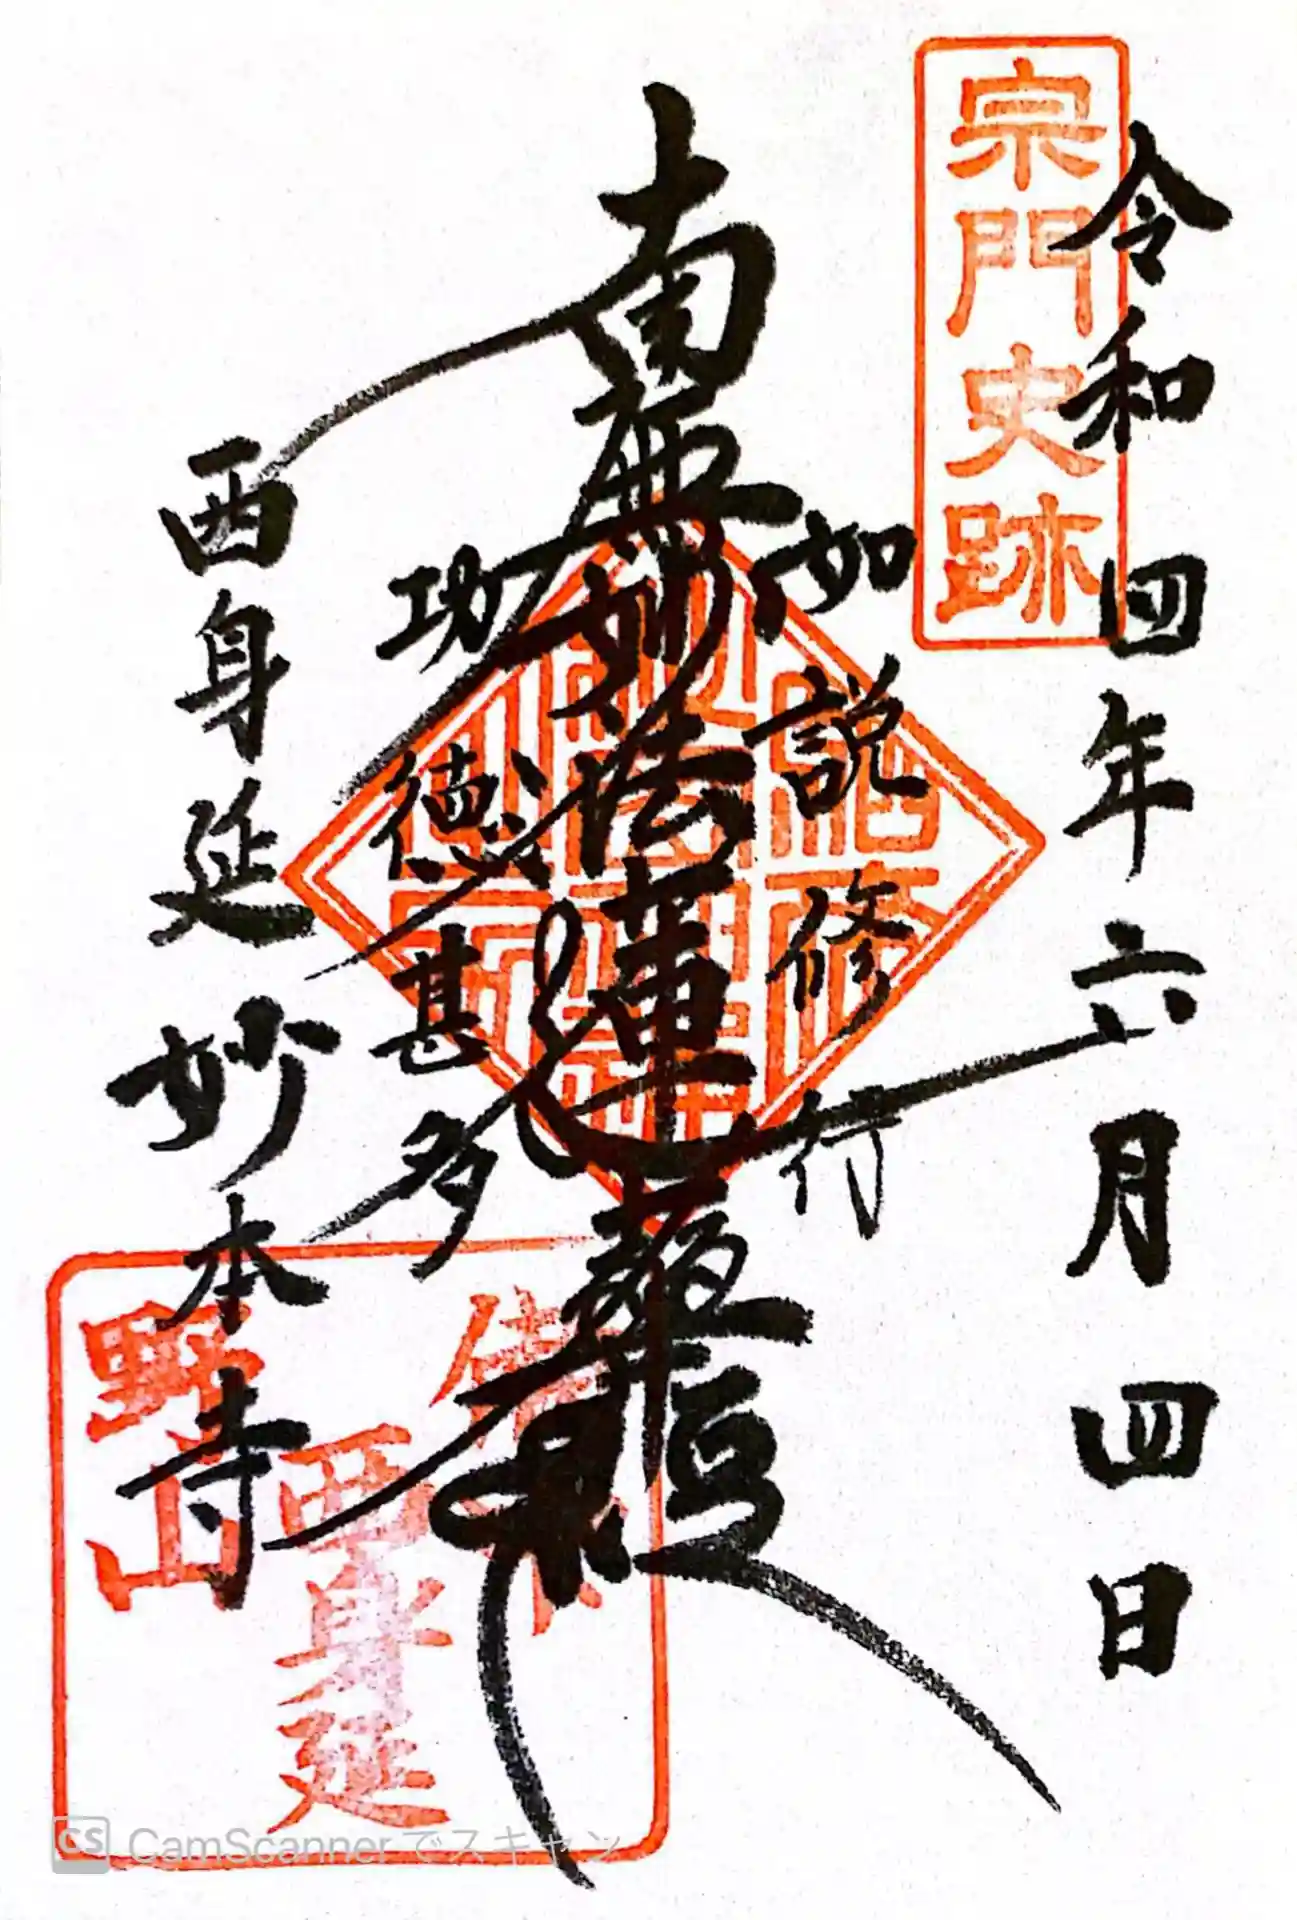 宗門史跡
令和四年六月四日
如説修行
南無妙法蓮華経
功徳甚多
西身延妙本寺
西身延
野山
CamScannerでスキャン